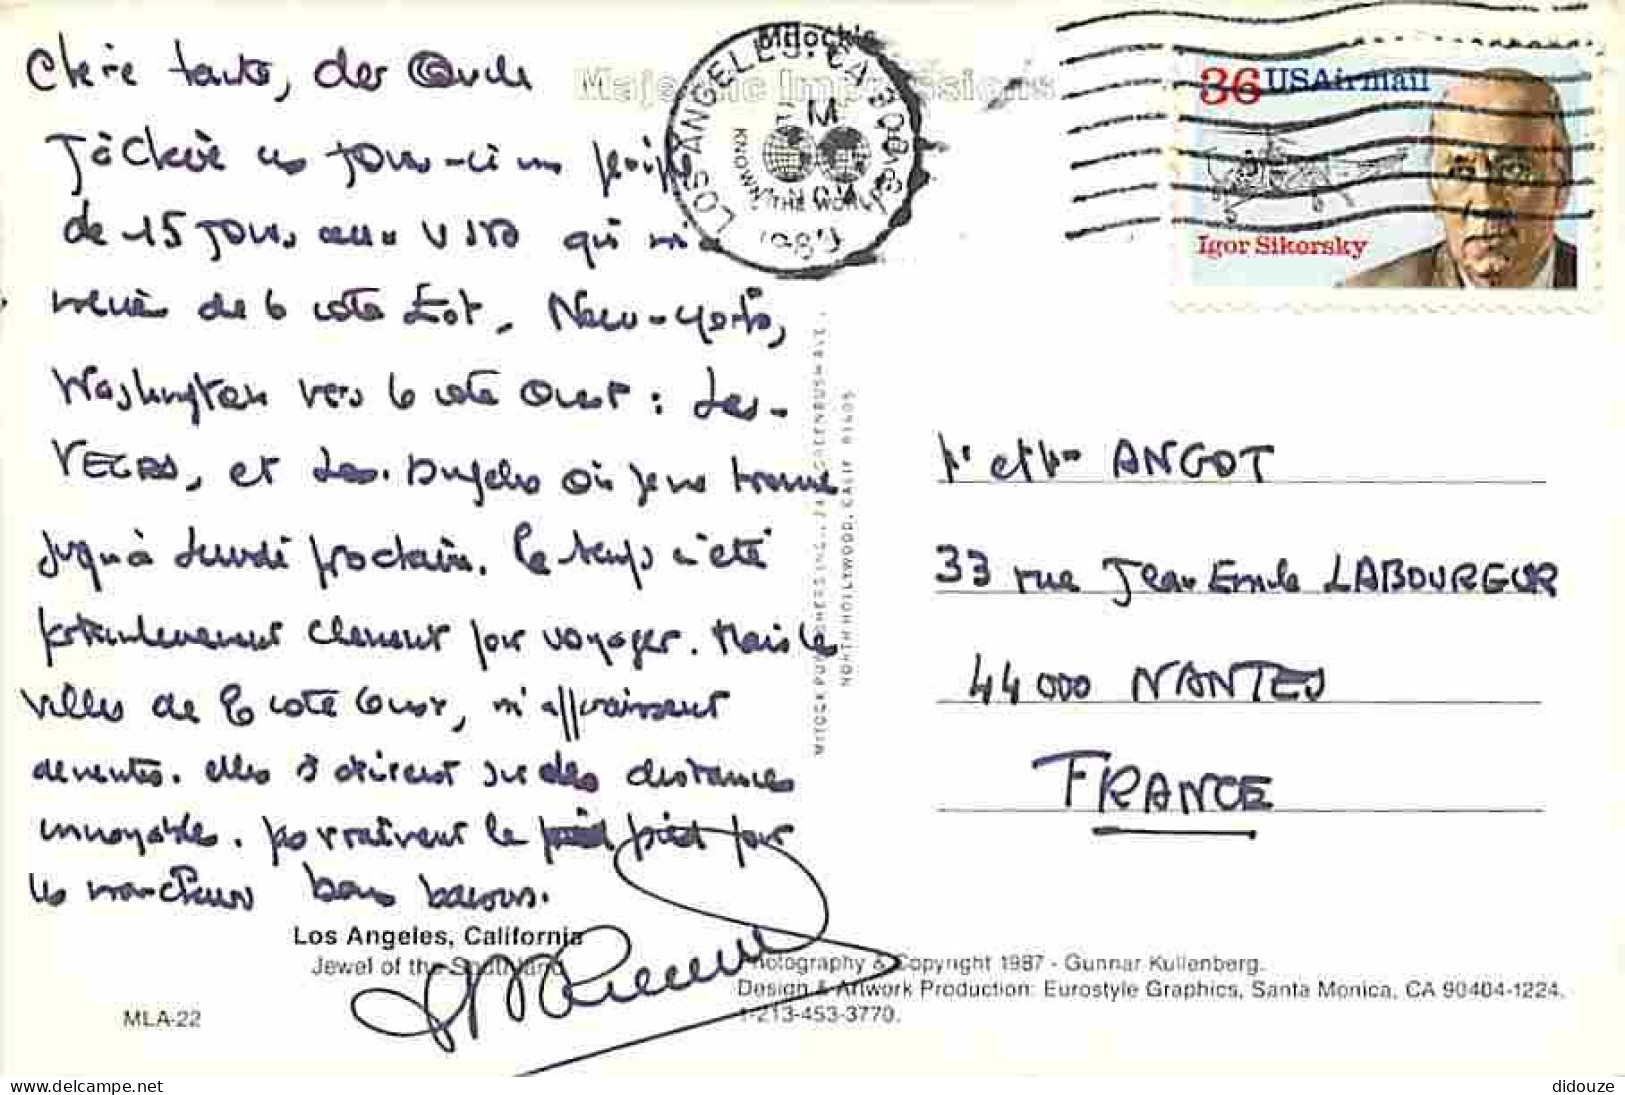 Chère tante, cher Oncle
J'achève ces jours-ci un périple
de 15 jours aux USA qui m'a
mené de la côte Est, New-York,
Washington vers la côte Ouest : Las-
VEGAS, et Los-Angeles où je me trouve
jusqu'à Lundi prochain. Le temps a été
particulièrement clément pour voyager. Mais les
villes de la côte Ouest, m'apparaissent
démentes. elles s'étirent sur des distances
incroyables. pas vraiment le pied pour
les marcheurs bons baisers.
Mitock's
Majestic Impressions
LOS ANGELES, CA 900
PM
KNOWN THE WORLD
1989
36 USAirmail
Igor Sikorsky
MITOCK PUBLISHERS INC., GREENBUSH AVE.
NORTH HOLLYWOOD, CALIF 91605
Mr et Mme ANGOT
33 rue Jean Emile LABOUREUR
44000 NANTES
FRANCE
Los Angeles, California
Jewel of the Southland
MLA-22
Photography & Copyright 1987 - Gunnar Kullenberg.
Design & Artwork Production: Eurostyle Graphics, Santa Monica, CA 90404-1224.
1-213-453-3770.
www.delcampe.net
didouze